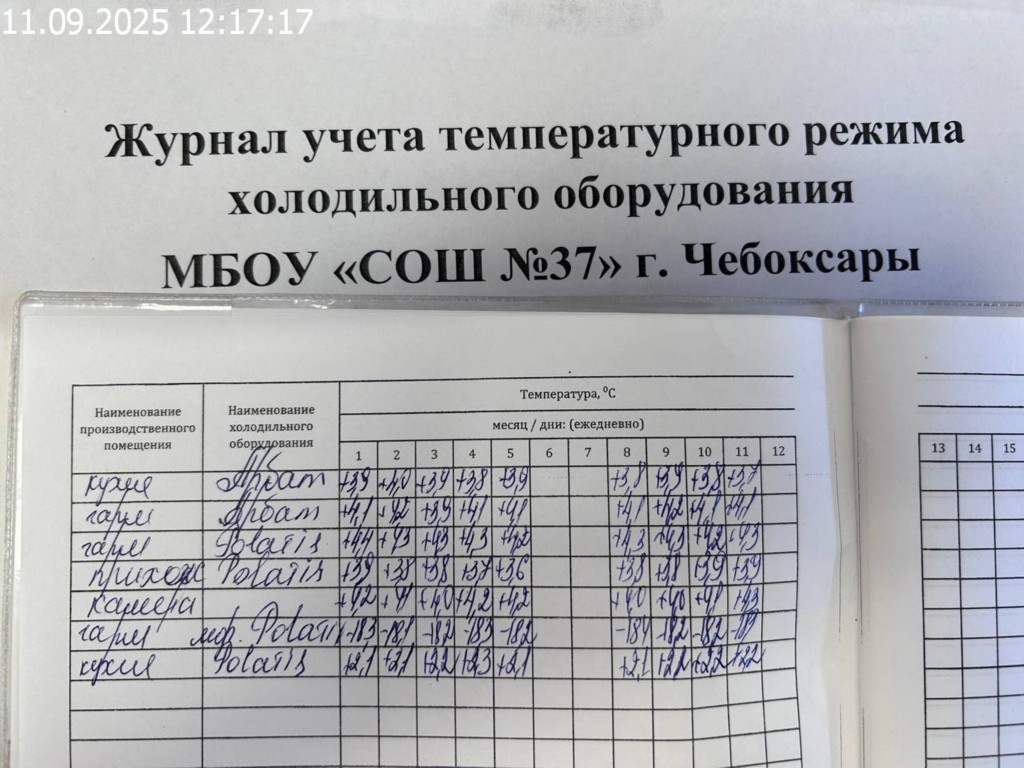 11.09.2025 12:17:17
Журнал учета температурного режима
холодильного оборудования
МБОУ «СОШ №37» г. Чебоксары
Наименование производственного помещения
Наименование холодильного оборудования
Температура, ⁰С
месяц / дни: (ежедневно)
1 2 3 4 5 6 7 8 9 10 11 12
13 14 15
кухня Арбат +3,9 +4,0 +3,9 +3,8 +3,9 +3,8 +3,9 +3,8 +3,7
Арбат +4,1 +4,2 +3,9 +4,1 +4,1 +4,1 +4,2 +4,1 +4,1
Polatis +4,4 +4,3 +4,3 +4,3 +4,2 +4,3 +4,3 +4,2 +4,3
Polatis +3,9 +3,8 +3,8 +3,7 +3,6 +3,8 +3,8 +3,9 +3,9
камера +4,2 +4,1 +4,0 +4,2 +4,2 +4,0 +4,0 +4,1 +4,3
Polatis -18,3 -18,1 -18,2 -18,3 -18,2 -18,4 -18,2 -18,2
кухня Polatis +2,1 +2,1 +2,2 +2,3 +2,1 +2,1 +2,2 +2,2 +2,2